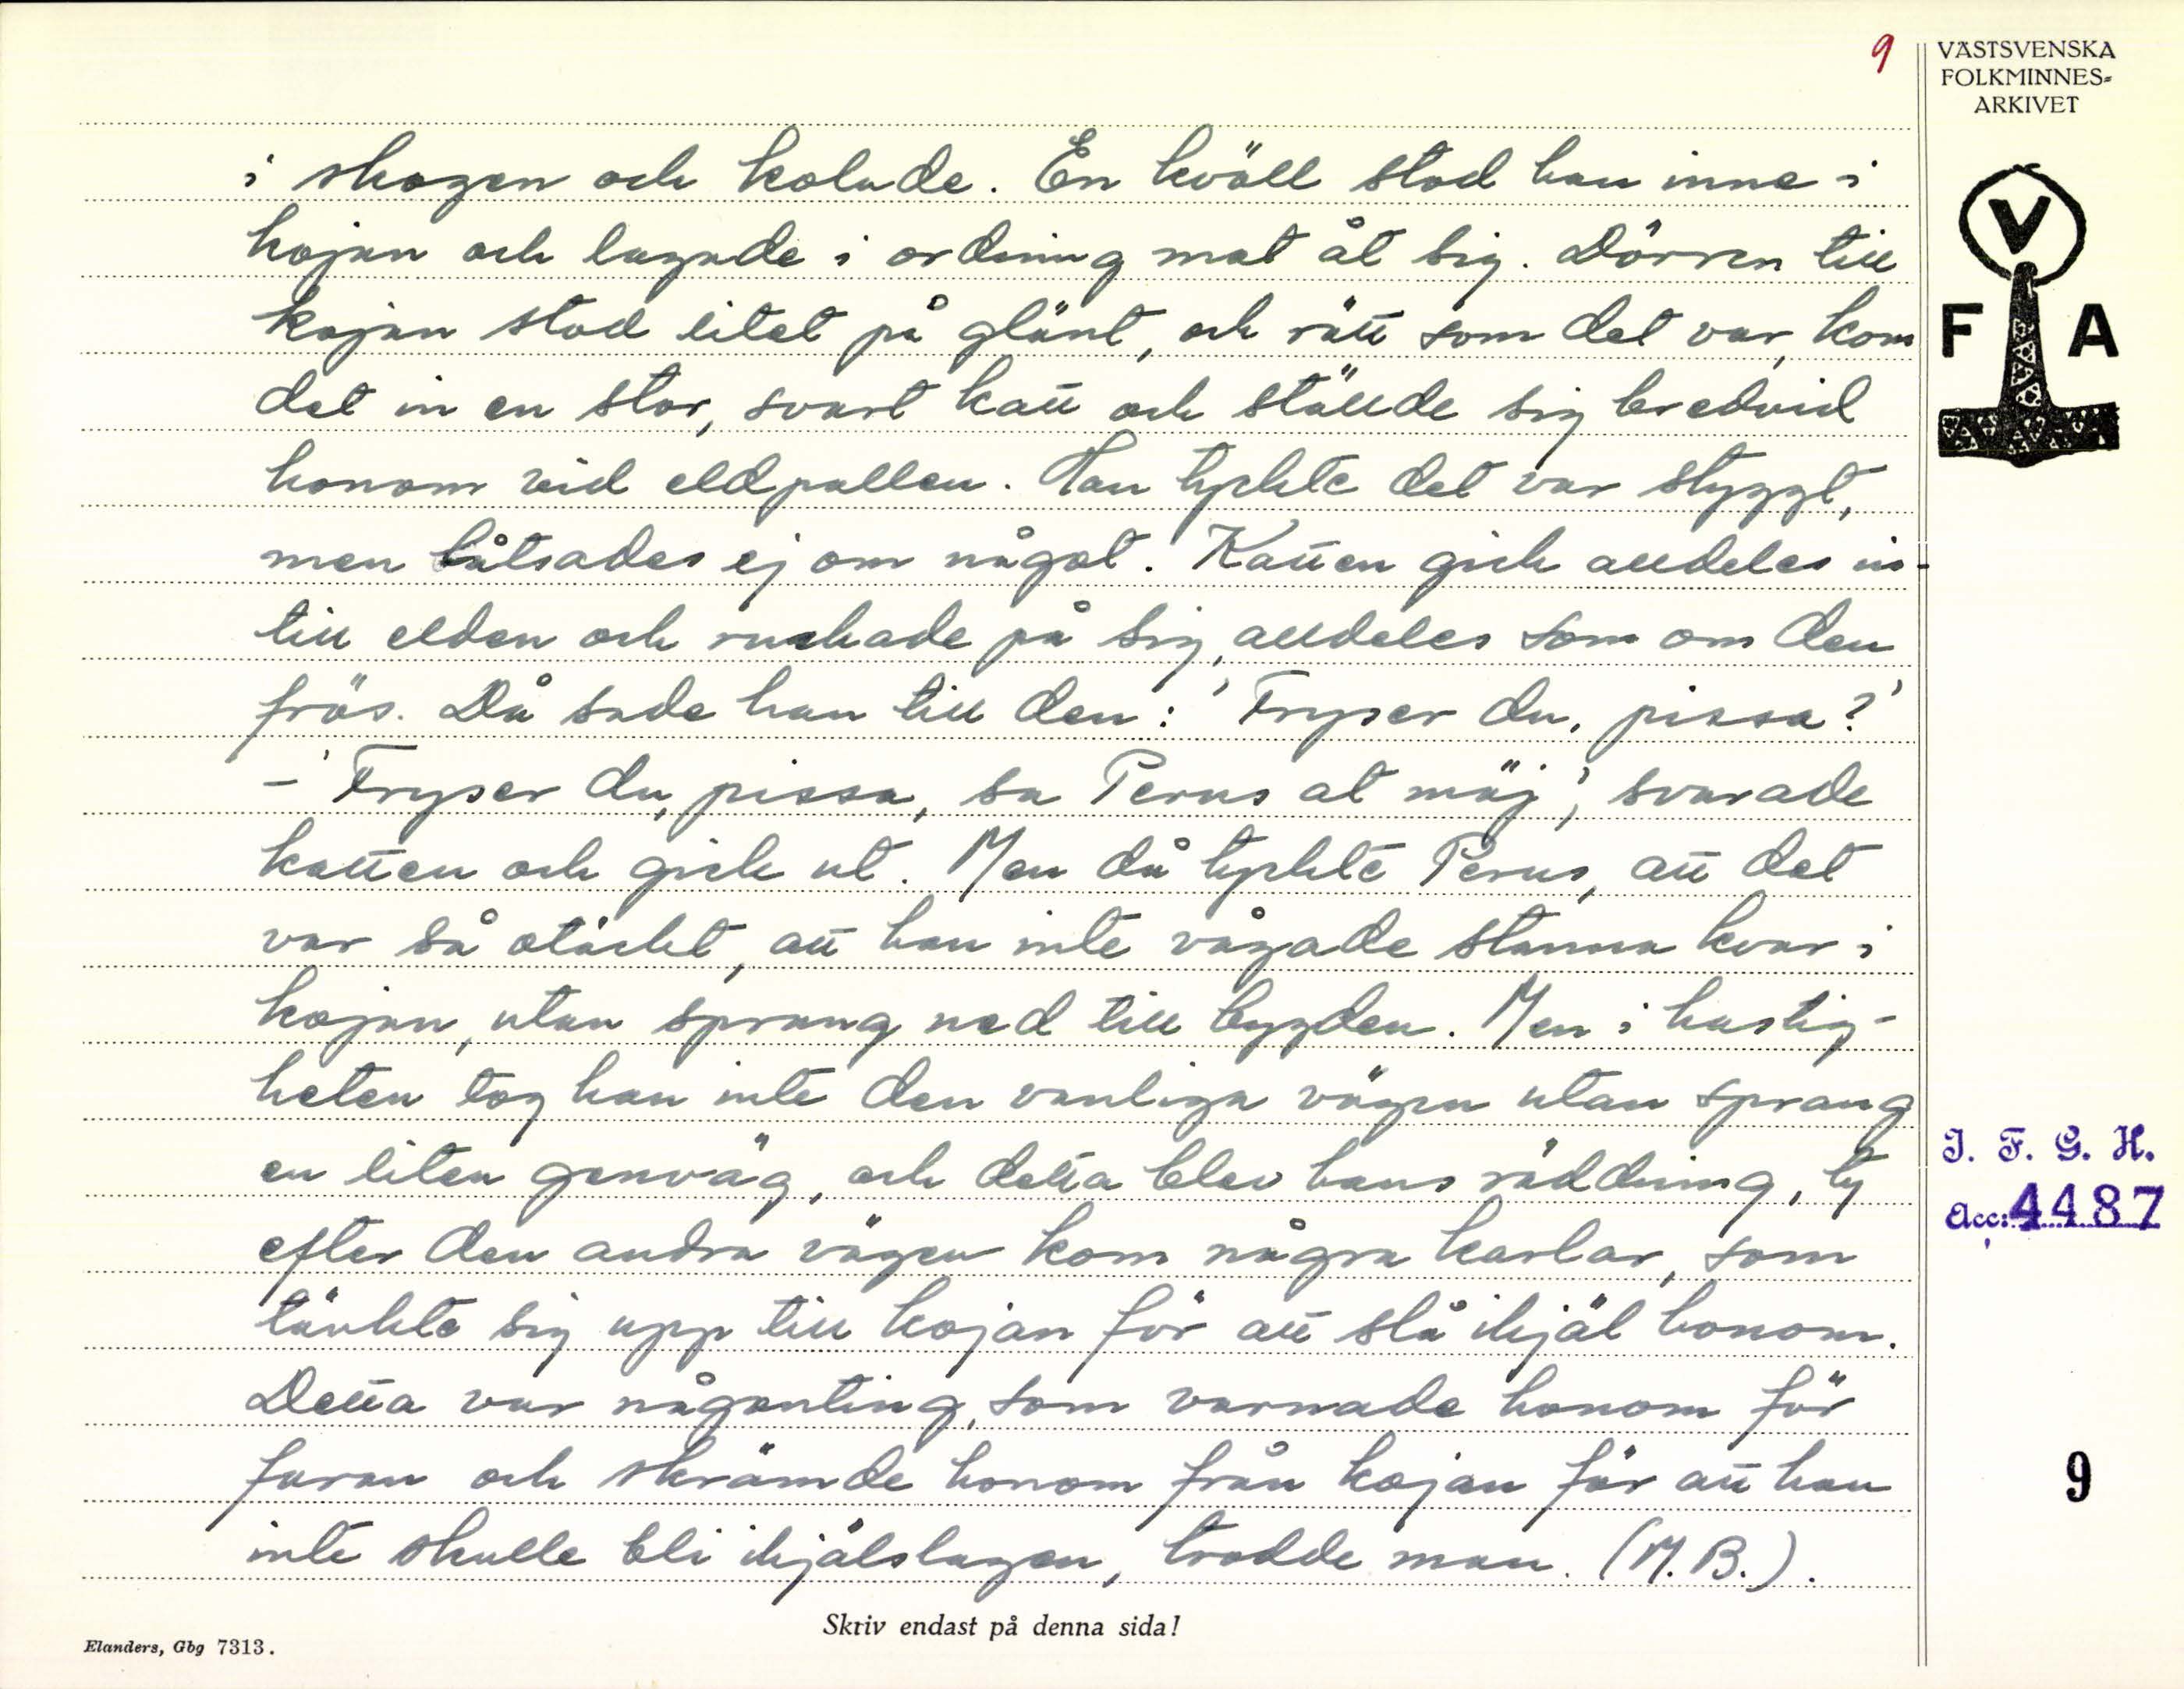 9
VÄSTSVENSKA
FOLKMINNES=
ARKIVET
V
F A
i skogen och kolade. En kväll stod han inne i
kojan och lagade i ordning mat åt sig. Dörren till
kojan stod litet på glänt, och rätt som det var, kom
det in en stor, svart katt och ställde sig bredvid
honom vid eldpallen. Han tyckte det var styggt,
men låtsades ej om något. Katten gick alldeles in-
till elden och ruckade på sig, alldeles som om den
frös. Då sade han till den: 'Fryser du, pissa?'
- 'Fryser du, pissa, sa Perus at mäj', svarade
katten och gick ut. Men då tyckte Perus, att det
var så otäckt, att han inte vågade stanna kvar i
kojan, utan sprang ned till bygden. Men i hastig-
heten tog han inte den vanliga vägen utan sprang
en liten genväg, och detta blev hans räddning, ty
efter den andra vägen kom några karlar, som
tänkte sig upp till kojan för att slå ihjäl honom.
Detta var någonting, som varnade honom för
faran och skrämde honom från kojan för att han
inte skulle bli ihjälslagen, trodde man. (M.B.).
I. F. G. H.
Acc: 4487
9
Skriv endast på denna sida!
Elanders, Gbg 7313.